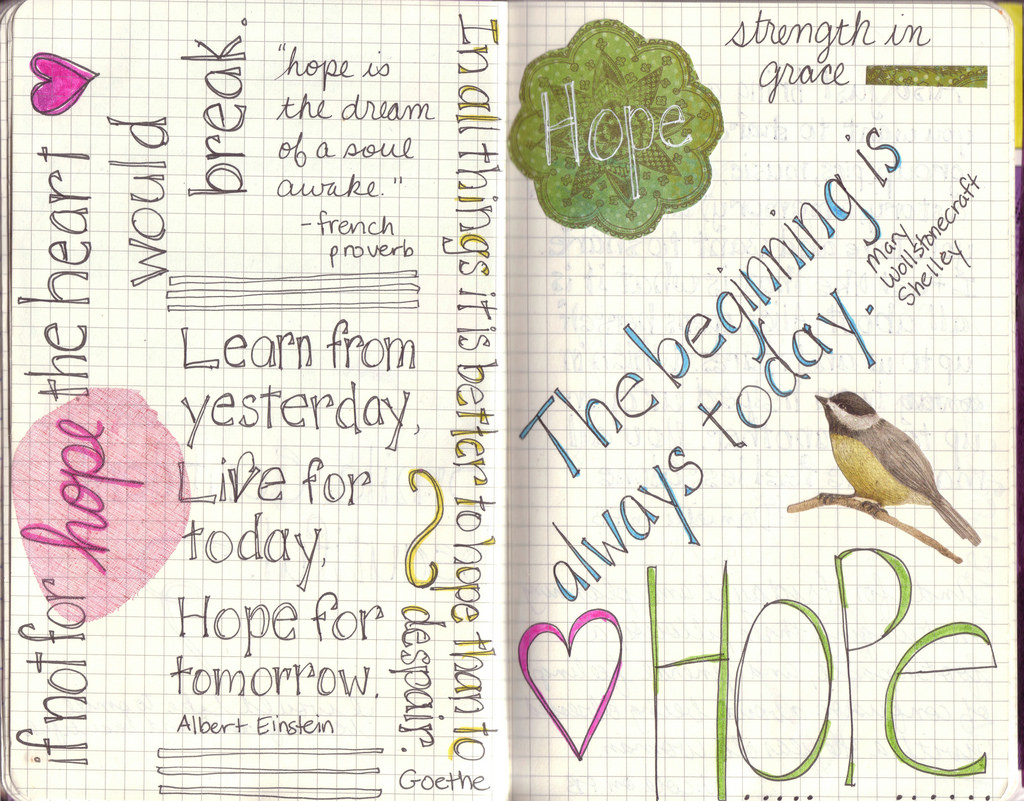 if not for hope the heart
would
break.
"hope is
the dream
of a soul
awake."
-french
proverb
Learn from
yesterday,
Live for
today,
Hope for
tomorrow.
Albert Einstein
In all things it is better to hope than to
despair.
Goethe
Hope
strength in
grace
The beginning is
always today.
Mary
Wollstonecraft
Shelley
HOPe